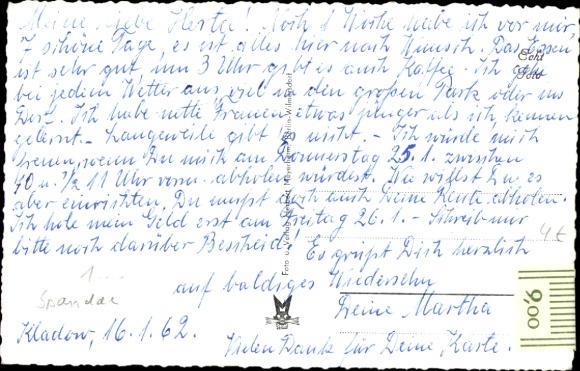 Meine liebe Herta! Noch 1 Woche habe ich vor mir,
7 schöne Tage, es ist alles hier nach Wunsch. Das Essen
ist sehr gut, um 3 Uhr gibt es auch Kaffee. Ich gehe
bei jedem Wetter aus, viel in den großen Park oder ins
Dorf. Ich habe nette Frauen etwas jünger als ich, kennen
gelernt. - Langeweile gibt es nicht. - Ich würde mich
freuen, wenn Du mich am Donnerstag 25.1. zwischen
10 u. 1/2 11 Uhr vorm. abholen würdest. Wie willst Du es
aber einrichten, Du mußt doch auch Deine Karte abholen.
Ich hole mein Geld erst am Freitag 26.1. - Schreib nur
bitte noch darüber Bescheid! Es grüßt Dich herzlich
auf baldiges Wiedersehn
Deine Martha
Kladow, 16.1.62.
Vielen Dank für Deine Karte.
Echt
Foto
Foto u. Verlag
Berlin-Wilmersdorf
4 €
1...
Spandau
9,00